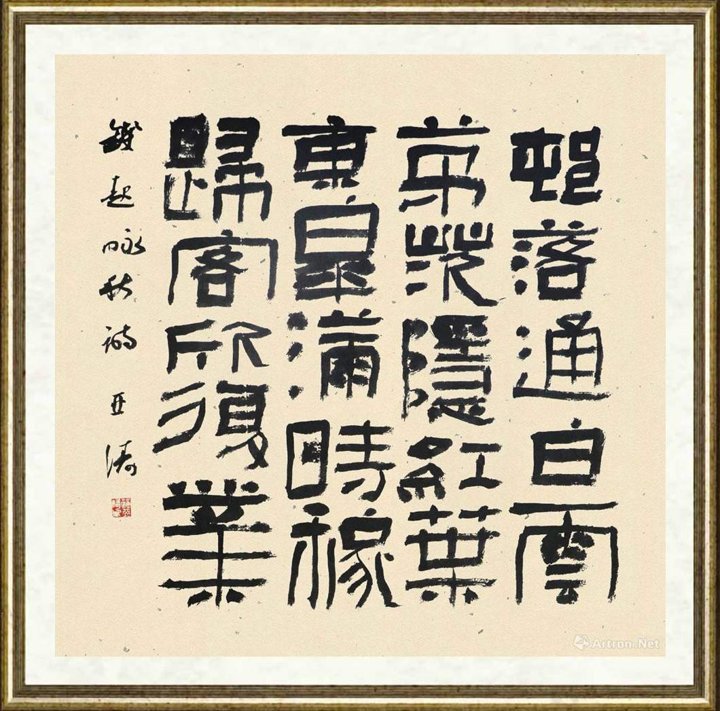 邨落通白雲
茅茨隱紅葉
東皋滿時稼
歸客欣復業
錢起咏秋詩 亚涛
Artron.Net